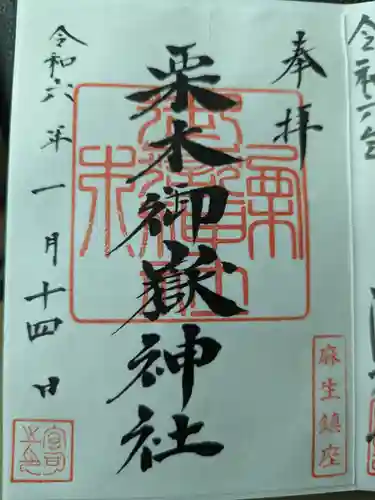 奉拝
栗木御嶽神社
令和六年一月十四日
麻生鎮座
令和六年